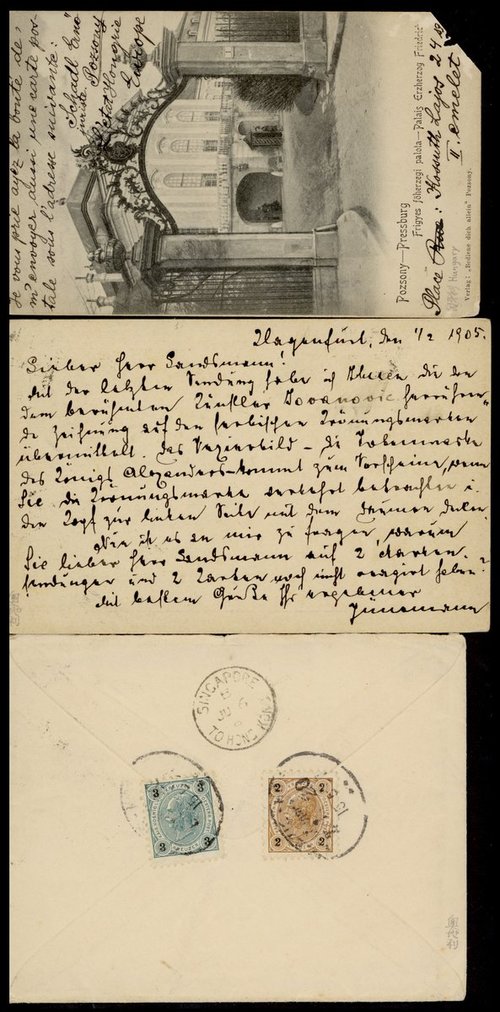 Je vous prie ayez la bonté de
m'envoyer aussi une carte pos-
tale sous l'adresse suivante:
Schadl Ernő
juriste
Pozsony
Hongrie
Europe
Place Rue: Kossuth Lajos 24
II. emelet
Pozsony—Pressburg
Frigyes főherzegi palota—Palais Erzherzog Friedrich
Verlag: „Bediene dich allein" Pozsony.
Hungary
Klagenfurt, den 1/2 1905.
Lieber Herr Landsmann!
Mit der letzten Sendung habe ich Ihnen die von
dem berühmten Künstler Jovanovic herrühren-
de Zeichnung auf den serbischen Krönungsmarken
übermittelt. Das Vexierbild – die Todtenmaske
des Königs Alexanders – kommt zum Vorscheine, wenn
Sie die Krönungsmarke verkehrt betrachten u.
den Kopf zur linken Seite mit dem Daumen decken.
Wie ist es an mir zu fragen, warum
Sie lieber Herr Landsmann auf 2 Marken-
sendungen und 2 Karten noch nicht reagirt haben?
Mit bestem Gruße Ihr ergebener
SINGAPORE
TO HONG KONG
3 3
3 KREUZER 3
2 2
2 2
奧地利